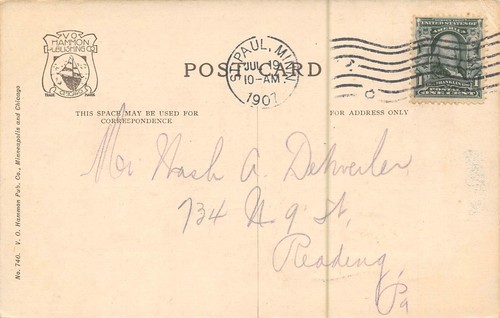 V.O.
HAMMON
PUBLISHING CO.
CHICAGO
TRADE MARK
POST CARD
ST. PAUL, MINN.
JUL 19
10-AM
1907
FRANKLIN
POSTAGE ONE CENT
THIS SPACE MAY BE USED FOR
CORRESPONDENCE
FOR ADDRESS ONLY
Mr. Wash A. Detweiler
734 N. 9 St,
Reading,
Pa
No. 740. V. O. Hammon Pub. Co., Minneapolis and Chicago